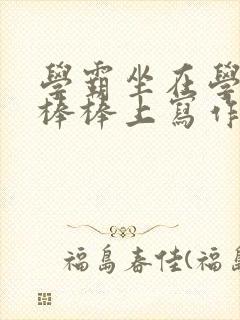 學霸坐在學
棒棒上寫作
福島春佳(福島